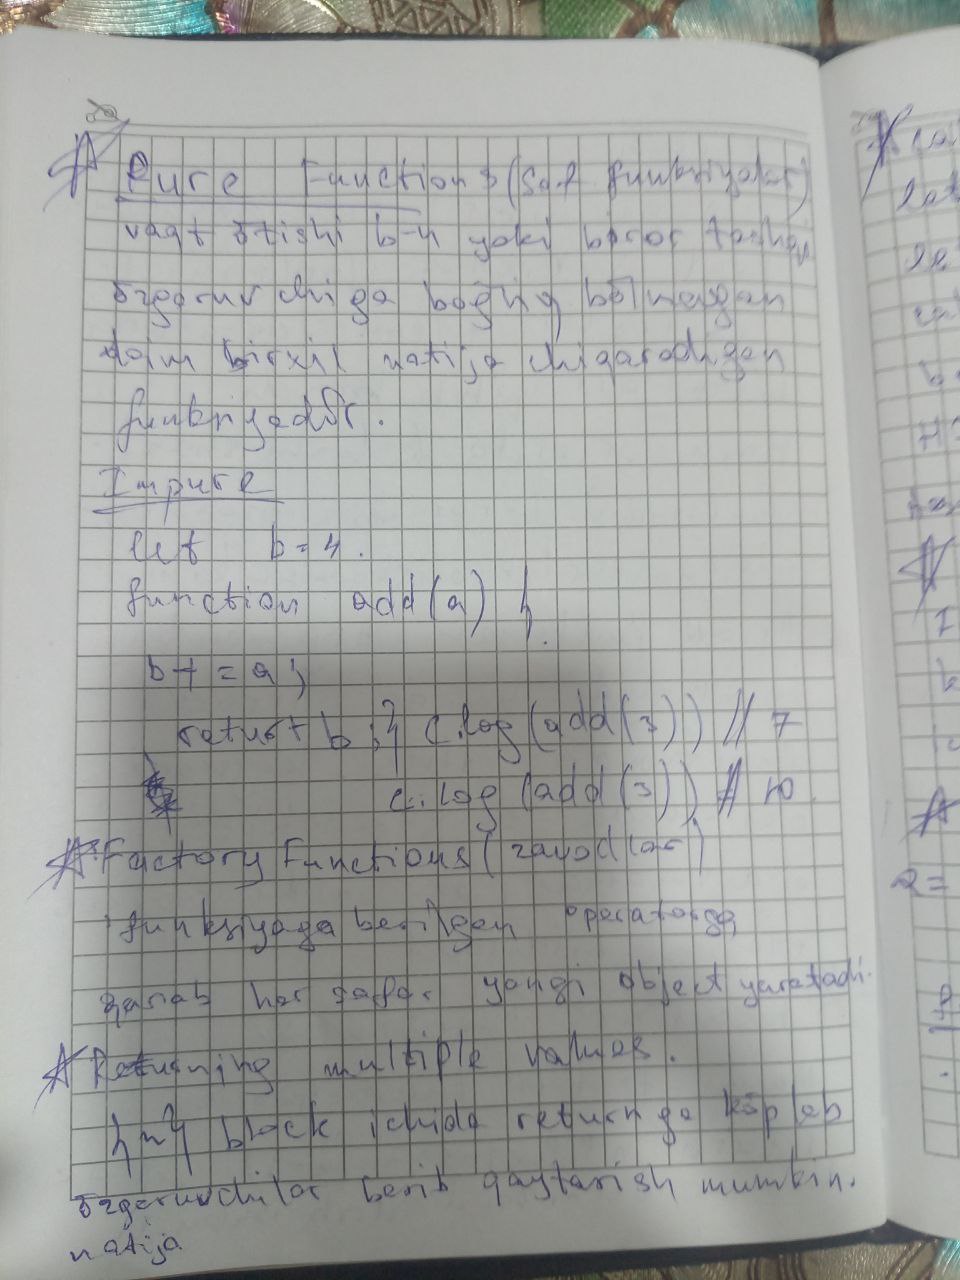 Pure Functions (Sof funksiyalar)
vaqt õtishi b-n yoki biror tashqi
õzgaruvchiga bog'liq bõlmagan
doim bir xil natija chiqaradigan
funksiyadir.
Impure
let b = 4.
function add(a) {
b += a;
return b;} c.log(add(3)) // 7
c.log(add(3)) // 10
Factory Functions (zavodlar)
funksiyaga berilgan operatorga
qarab har safar yangi object yaratadi.
Returning multiple values.
{ } block ichida returnga kõplab
õzgaruvchilar berib qaytarish mumkin.
natija